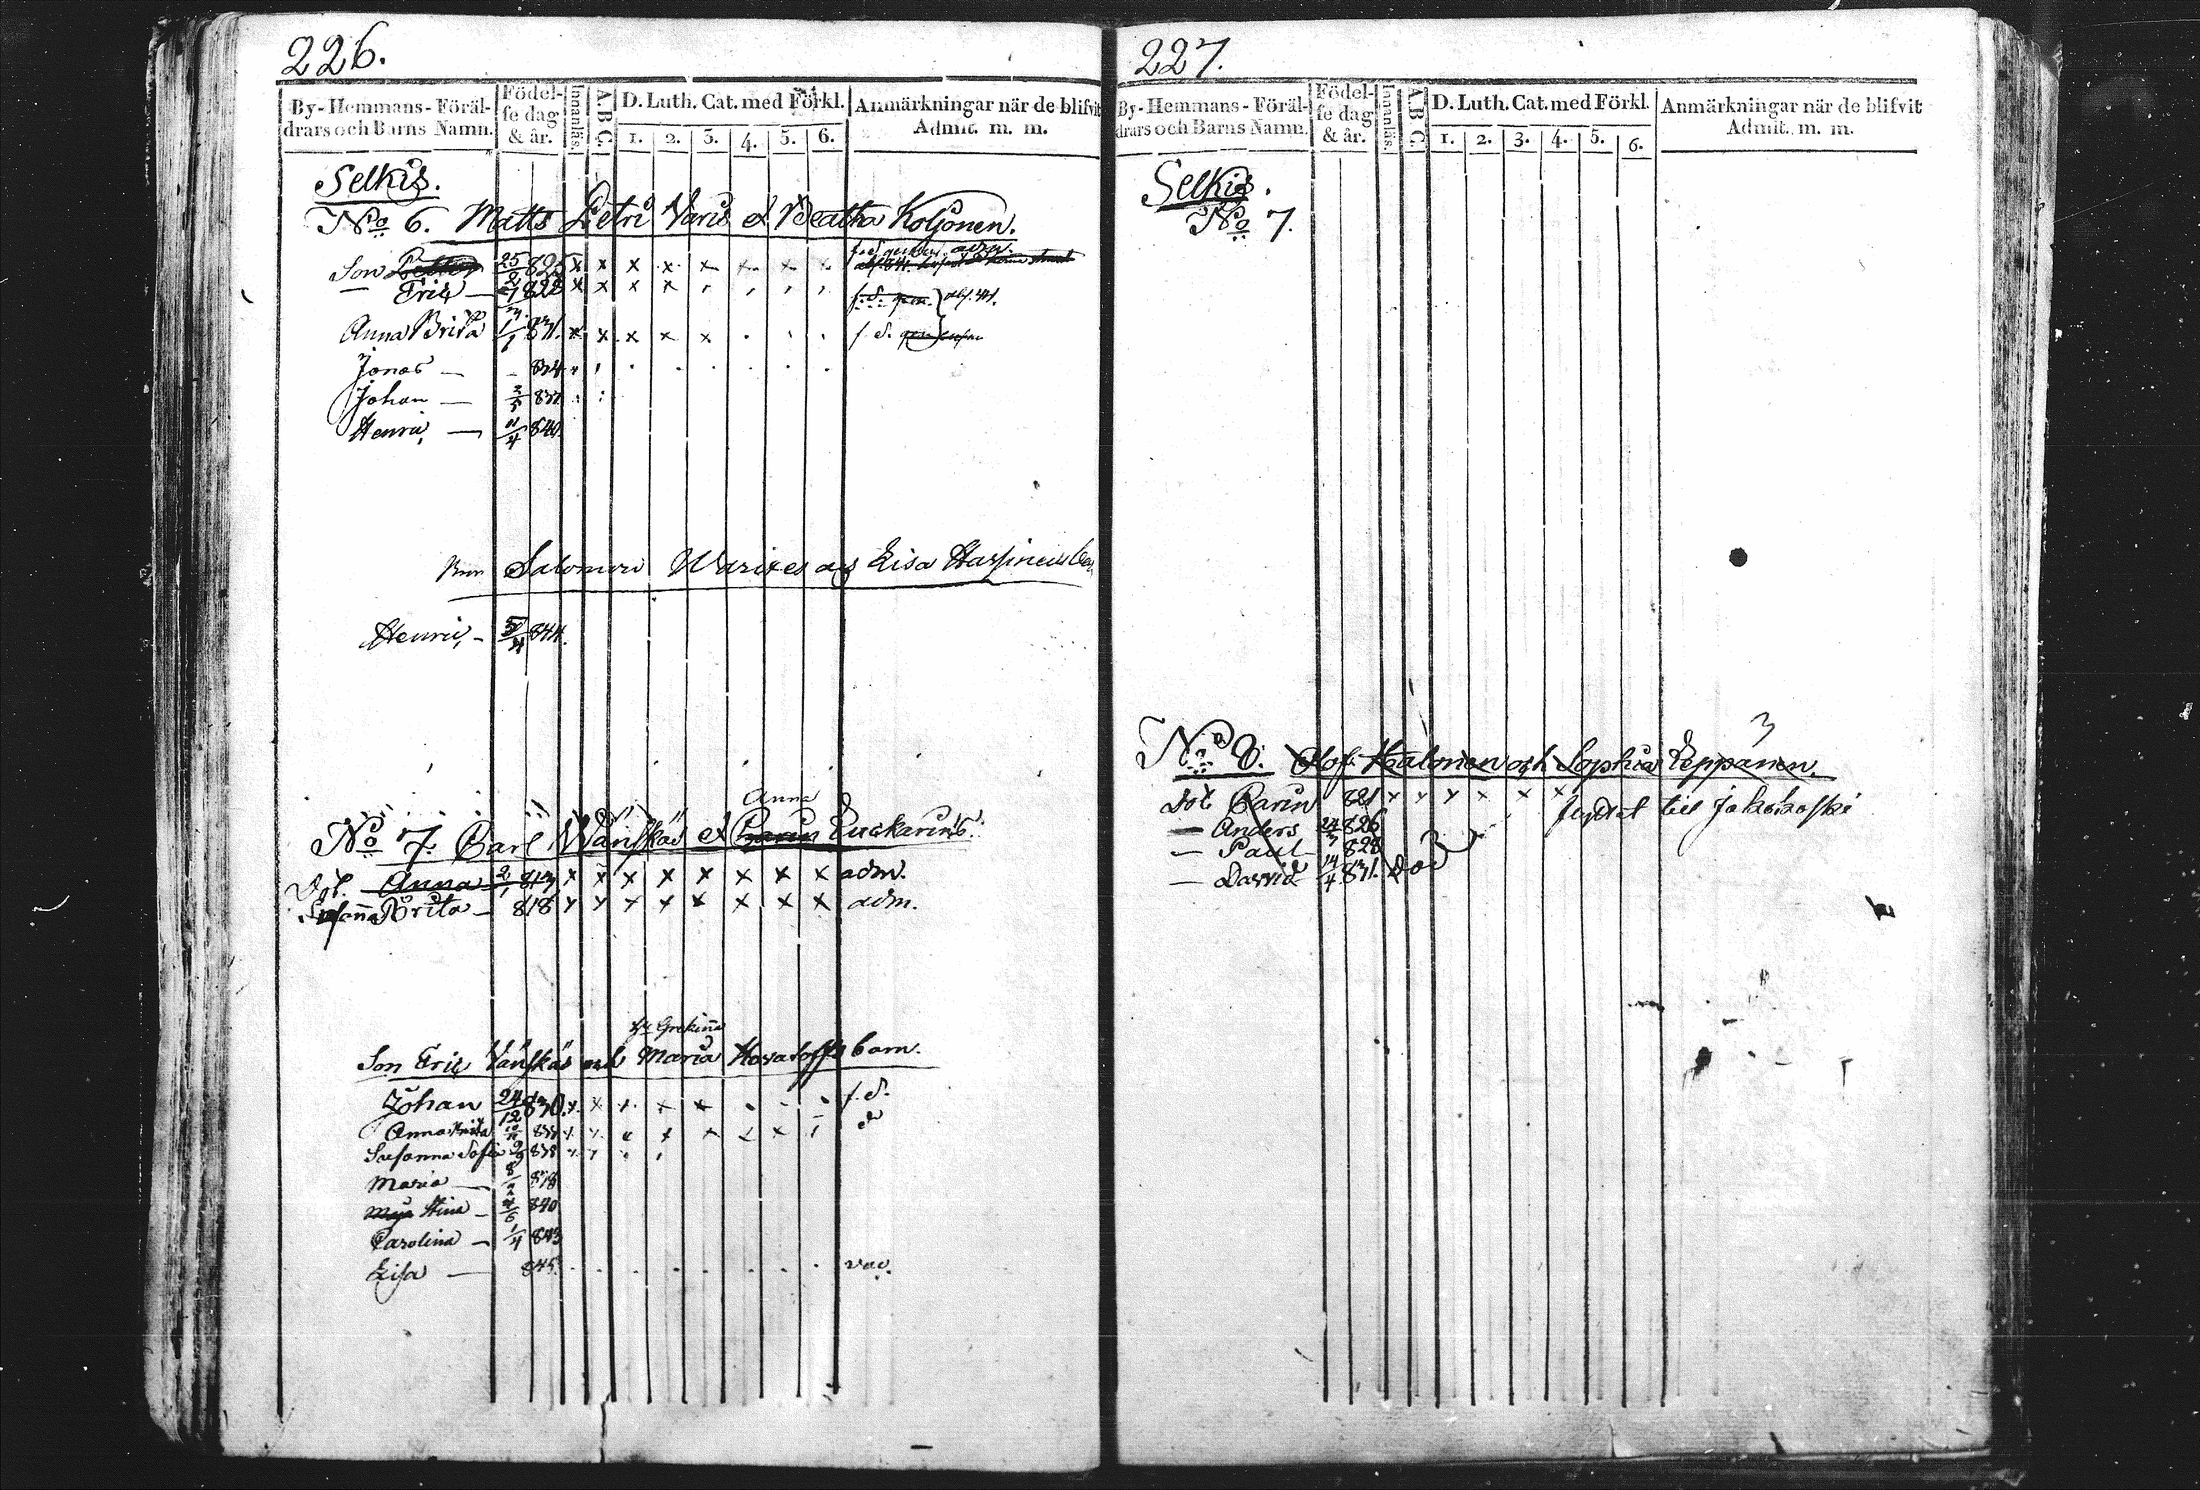 226.
By-Hemmans-Föräl-
drars och Barns Namn.
Födel-
se dag
& år.
Innanläs.
A.B.C.
D. Luth. Cat. med Förkl.
1. 2. 3. 4. 5. 6.
Anmärkningar när de blifvit
Admit. m. m.
Selkis.
No 6. Matts Petri Varis et Beatha Koljonen.
Son Petter 25/2 825 x x x x x
Eric — 828 x x x x
Anna Brita 1/1 831. x x x x x f. d.
Jonas — - 834
Johan — 2/5 837
Henric — 11/4 840
Salomon Warixes och Lisa
Henric - 5/4 844.
Anna
No 7. Carl Wänskäs et Carin Tuckarinis.
Dot. Anna 2/1 813 x x x x x x x x adm.
Susanna Brita - 818 x x x x x x x x adm.
Grekinna
Son Eric Vänskäs och Maria barn.
Johan 24/12 830. x x x x x f. d.
Anna Brita 10/11 x x x x x x x x d
Susanna Sofia 838
Maria — 8/2 838
Maja Stina - 840
Carolina — 1/4 843
Lisa — 845. vac.
227.
By-Hemmans-Föräl-
drars och Barns Namn.
Födel-
se dag
& år.
Innanläs.
A.B.C.
D. Luth. Cat. med Förkl.
1. 2. 3. 4. 5. 6.
Anmärkningar när de blifvit
Admit. m. m.
Selkis.
No 7.
No 8. Olof Halonen och Sophia Eeppänen.
Dot. Carin 821 x x x x x x flyttat till Jakokoski
— Anders 24/3 826
— Paul 828
— David 14/4 831. död